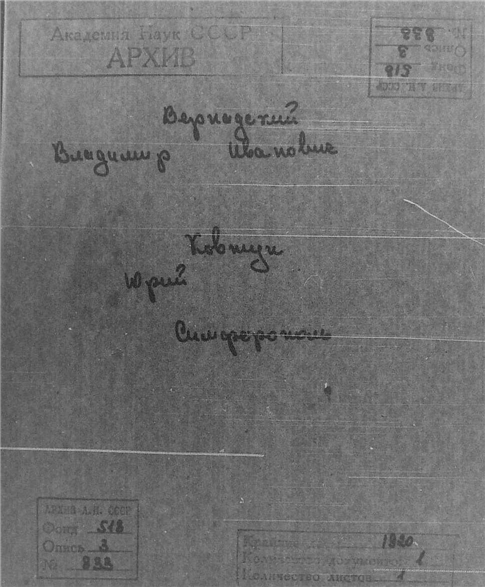 Академия Наук СССР
АРХИВ
АРХИВ А.Н. СССР
Фонд 518
Опись 3
№ 833
Вернадский
Владимир Иванович
Ковтун
Юрий
Симферополь
АРХИВ А.Н. СССР
Фонд 518
Опись 3
№ 833
Крайние 1920
Количество документов 1
Количество листов 1